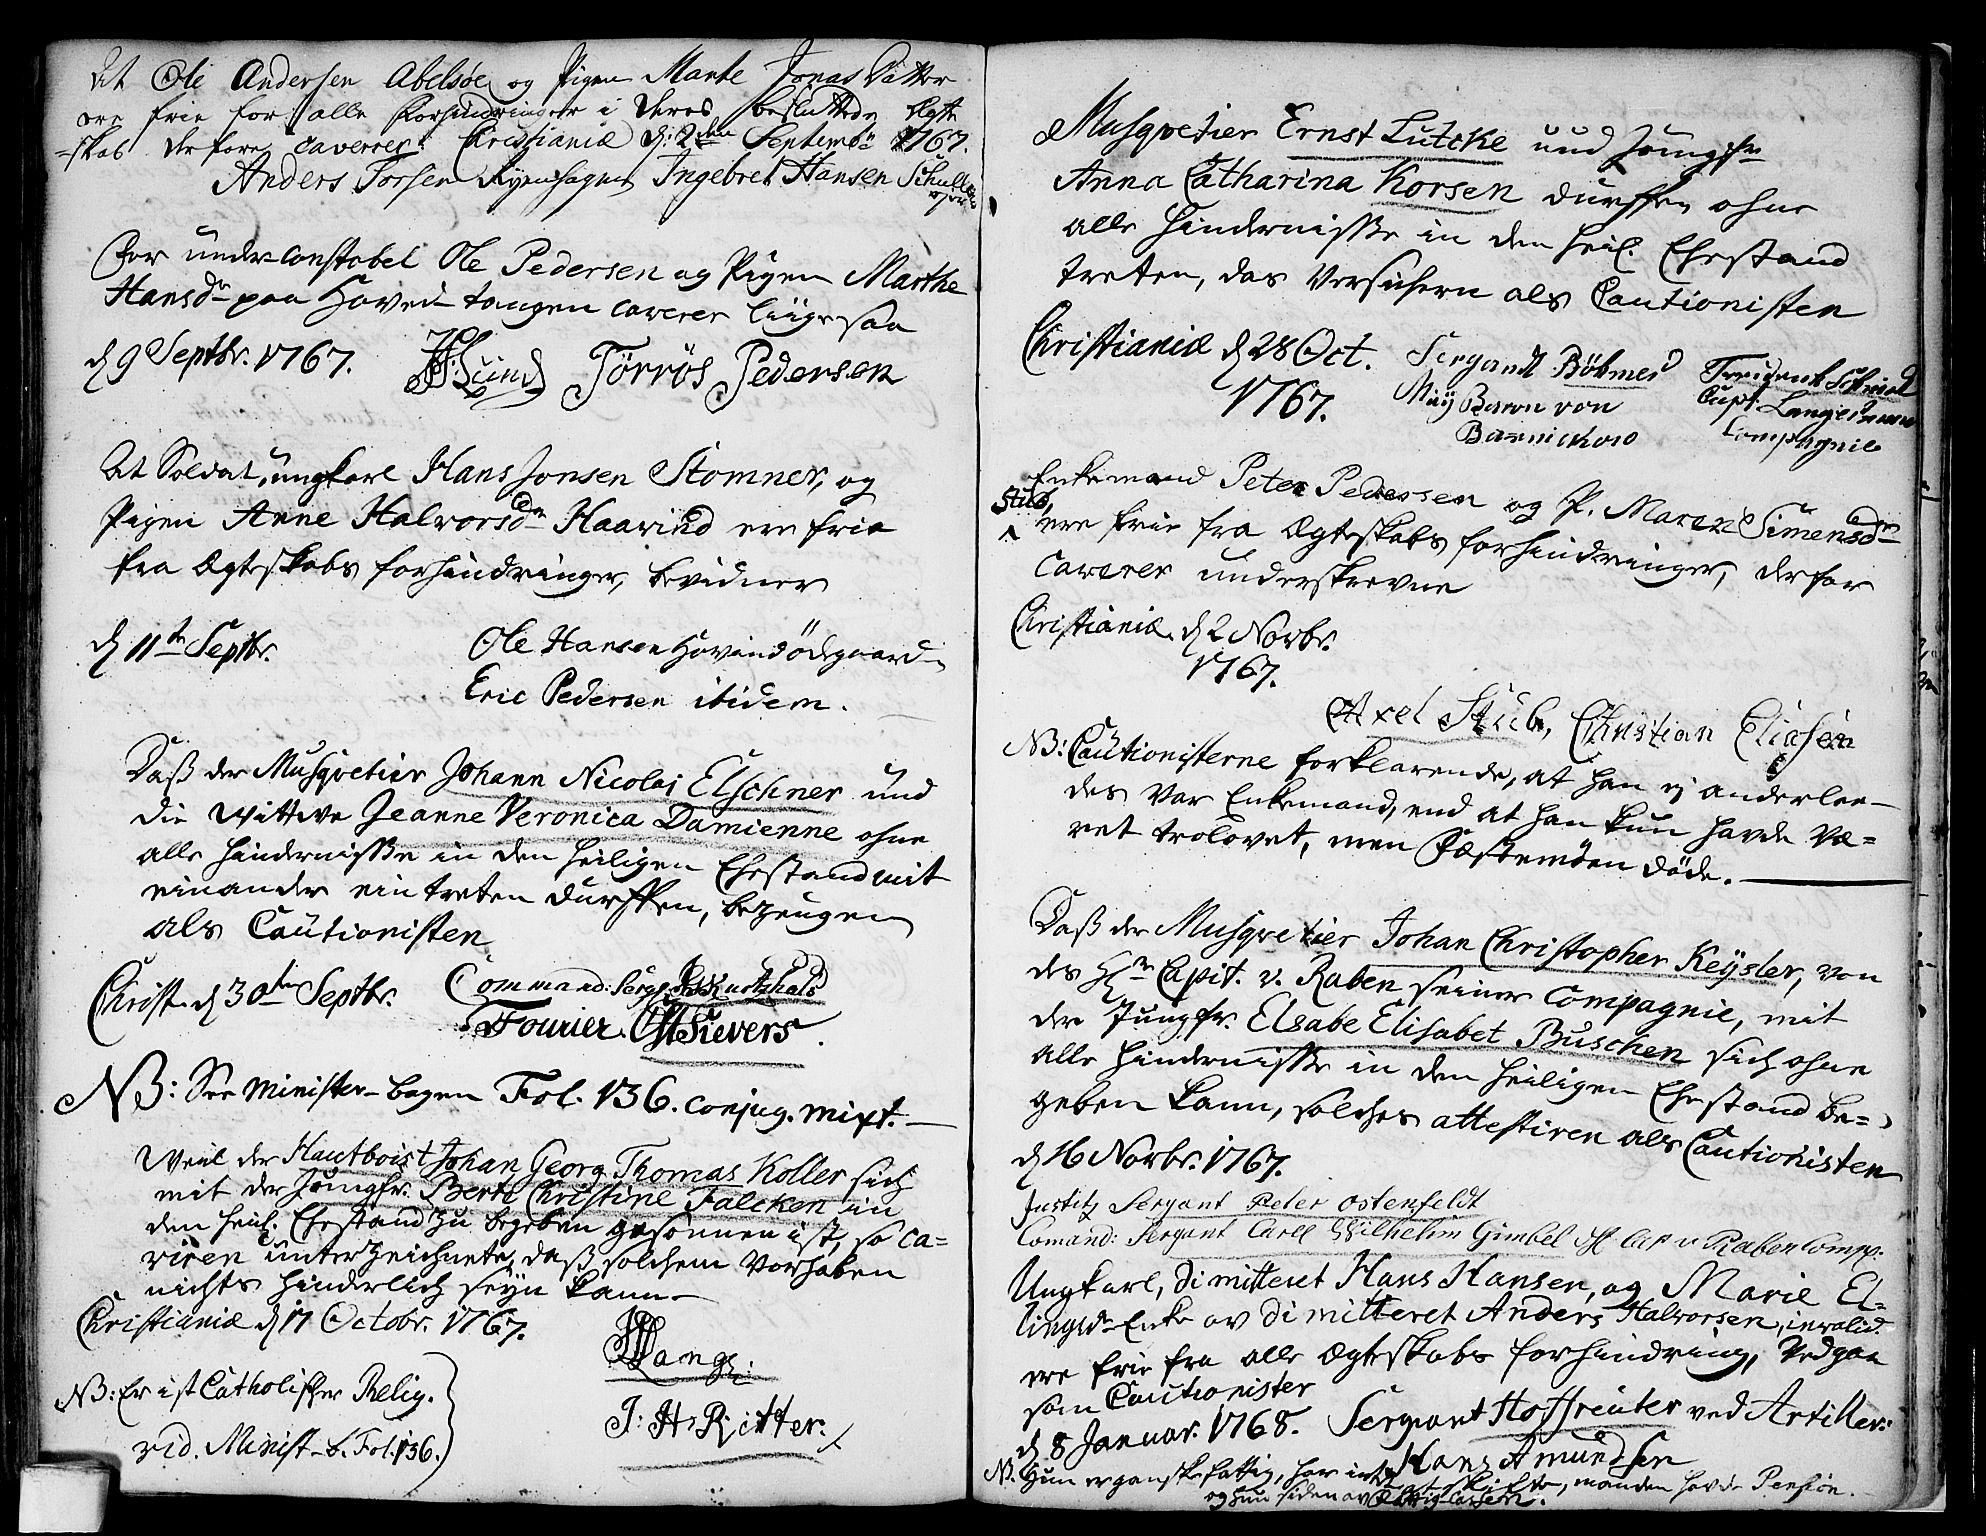 At Ole Andersen Abelsöe og Pigen Marte Jonas Datter
ere frie for alle forhindringer i deres besluttede Ægte
-skab derfore caverer. Christianiæ d: 2den Septembr 1767.
Anders Torsen Ryenhagen Ingebret Hansen
For under constabel Ole Pedersen og Pigen Marthe
Hansdr paa Hoved-tangen caverer liigesaa
d 9 Septbr. 1767. Lund Törrös Pedersen
At Soldat, ungkarl Hans Jonsen Stomner, og
Pigen Anne Halvorsdr Haavind ere frie
fra Ægteskabs forhindringer, bevidner
d 11te Septbr. Ole Hansen Hovindödegaard
Eric Pedersen ibidem.
Daß der Musqvetier Johann Nicolai Elschner und
die Wittwe Jeanne Veronica Damienne ohne
alle Hindernisse in den heiligen Ehestand mit
einander eintreten durffen, bezeugen
als Cautionisten
Christ. d 30ten Septbr. Command: Serg: Kurtzhals
Fourier Sievers.
NB: See Minister-bogen Fol. 136. conjug. mixt.
Weil der Hautboist Johan Georg Thomas Koller sich
mit der Jungfr. Berte Christine Falcken in
den heil. Ehestand zu begeben gesonnen ist, so ca=
viren unterzeichnete, daß solchem Vorhaben
nichts hinderlich seyn kann.
Christianiæ d 17 Octobr. 1767.
Lang
NB: Er ist Catholischer Relig.
vid. Minist-b. Fol. 136.
J: H: Ritter.
Musqvetier Ernst Lutcke und Jungfr
Anna Catharina Korsen durffen ohne
alle Hindernisse in den heil. Ehestand
treten, das versichern als Cautionisten
Christianiæ d 28 Oct. Sergandt Böhmer
1767. Baron von
Barnickow
Compagnie
Enkemand Peter Pedersen og P. Maren Simensdr
Stub,
ere frie fra Ægteskabs forhindringer, derfor
caverer underskrevne
Christianiæ d 2 Novbr.
1767.
Axel Stub, Christian Eliasen
NB: Cautionisterne forklarende, at han ej anderlee-
des var Enkemand, end at han kun havde væ=
ret trolovet, men Fæstemöen döde.
Daß der Musqvetier Johan Christopher Keysler, von
des Hrn Capit. v. Raben seiner Compagnie, mit
der Jungfr. Elsabe Elisabet Buschen sich ohne
alle Hindernisse in den heiligen Ehestand be=
geben kann, solches attestiren als Cautionisten
d 16 Novbr. 1767.
Justitz Sergant Peter Ostenfeldt
Comand: Sergant Carll Wilhelm Gimbel Cap v Raben Comp.
Ungkarl, dimitteret Hans Hansen, og Marie El=
lingsdr Enke av dimitteret Anders Halvorsen, invalid.
ere frie fra alle Ægteskabs forhindring, vedgaa
som Cautionister
d 8 Januar. 1768. Sergeant Hoffreuter ved Artiller:
Hans Amundsen
NB. Hun er ganske fattig, har intet at skifte, manden havde Pension.
og hun siden av